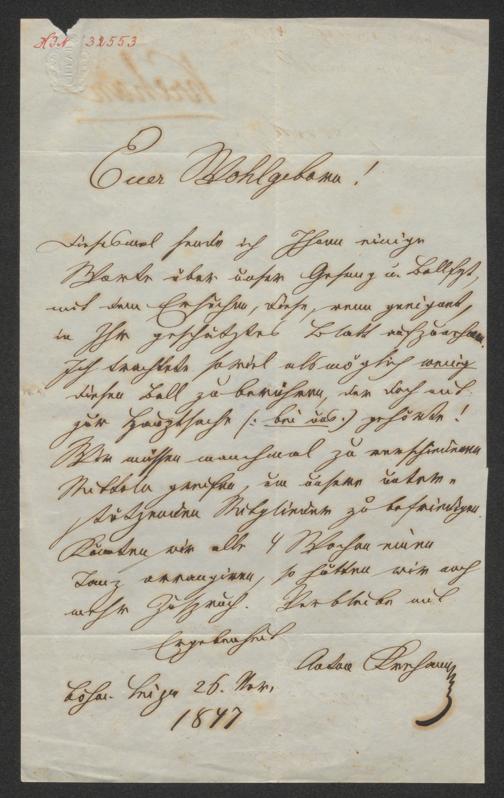 HIN 32553
Euer Wohlgeboren!
Diesesmal sende ich Ihnen einige
Worte über unser Gesang u. Ballfest,
mit dem Ersuchen, diese, wenn geeignet,
in Ihr geschätztes Blatt aufzunehmen.
Ich trachtete soviel als möglich wenig
diesen Ball zu berühren, der doch mit
zur Hauptsache (: bei uns :) gehörte!
Wir müssen manchmal zu verschiedenen
Mitteln greifen, um unsere unter-
stützenden Mitglieder zu befriedigen.
Könnten wir alle 4 Wochen einen
Tanz arrangiren, so hätten wir noch
mehr Zuspruch. Verbleibe mit
Ergebenheit
Anton
Böhm. Leipa 26. Nov.